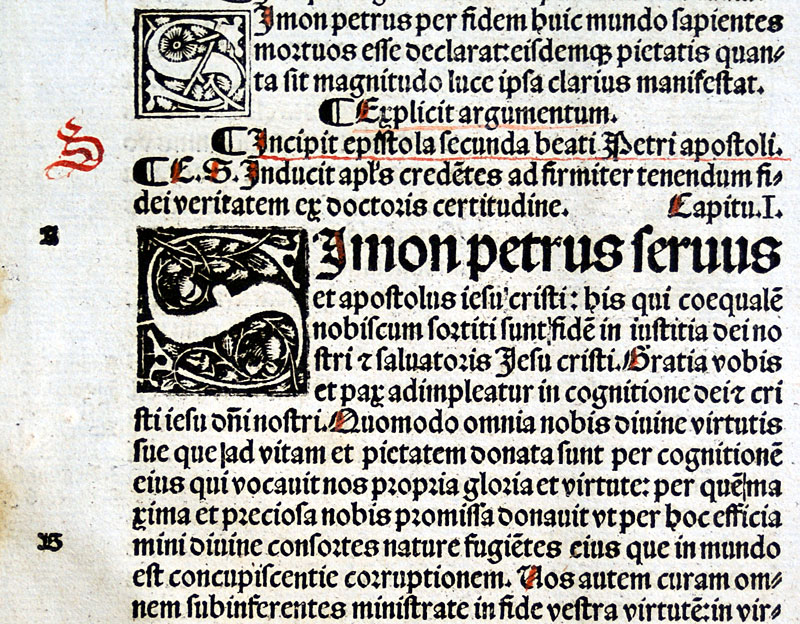 SImon petrus per fidem huic mundo sapientes
mortuos esse declarat: eisdemqꝫ pietatis quan-
ta sit magnitudo luce ipsa clarius manifestat.
¶ Explicit argumentum.
S
¶ Incipit epistola secunda beati Petri apostoli.
¶ E. S. Inducit apl's credẽtes ad firmiter tenendum fi-
dei veritatem ex doctoris certitudine. Capitu. I.
A
SImon petrus seruus
et apostolus iesu cristi: his qui coequalẽ
nobiscum sortiti sunt fidẽ in iustitia dei no
stri ⁊ saluatoris Jesu cristi. Gratia vobis
et pax adimpleatur in cognitione dei ⁊ cri
sti iesu dñi nostri. Quomodo omnia nobis diuine virtutis
sue que ad vitam et pietatem donata sunt per cognitionẽ
eius qui vocauit nos propria gloria et virtute: per quẽ ma
xima et preciosa nobis promissa donauit vt per hoc efficia
B
mini diuine consortes nature fugiẽtes eius que in mundo
est concupiscentie corruptionem. Vos autem curam om-
nem subinferentes ministrate in fide vestra virtutẽ: in vir-